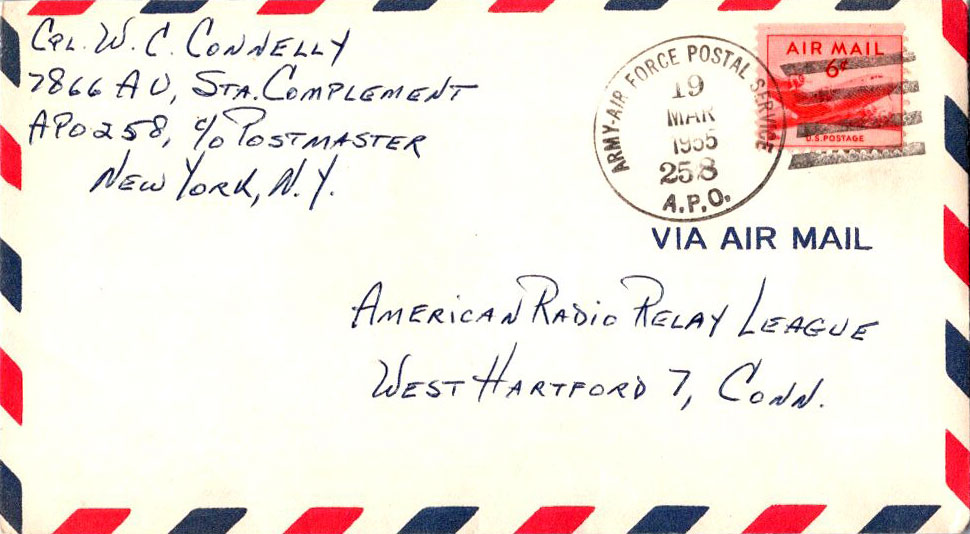 Cpl. W. C. Connelly
7866 AU, Sta. Complement
APO 258, c/o Postmaster
New York, N.Y.
ARMY-AIR FORCE POSTAL SERVICE
19
MAR
1955
258
A.P.O.
AIR MAIL
6¢
U.S. POSTAGE
VIA AIR MAIL
American Radio Relay League
West Hartford 7, Conn.